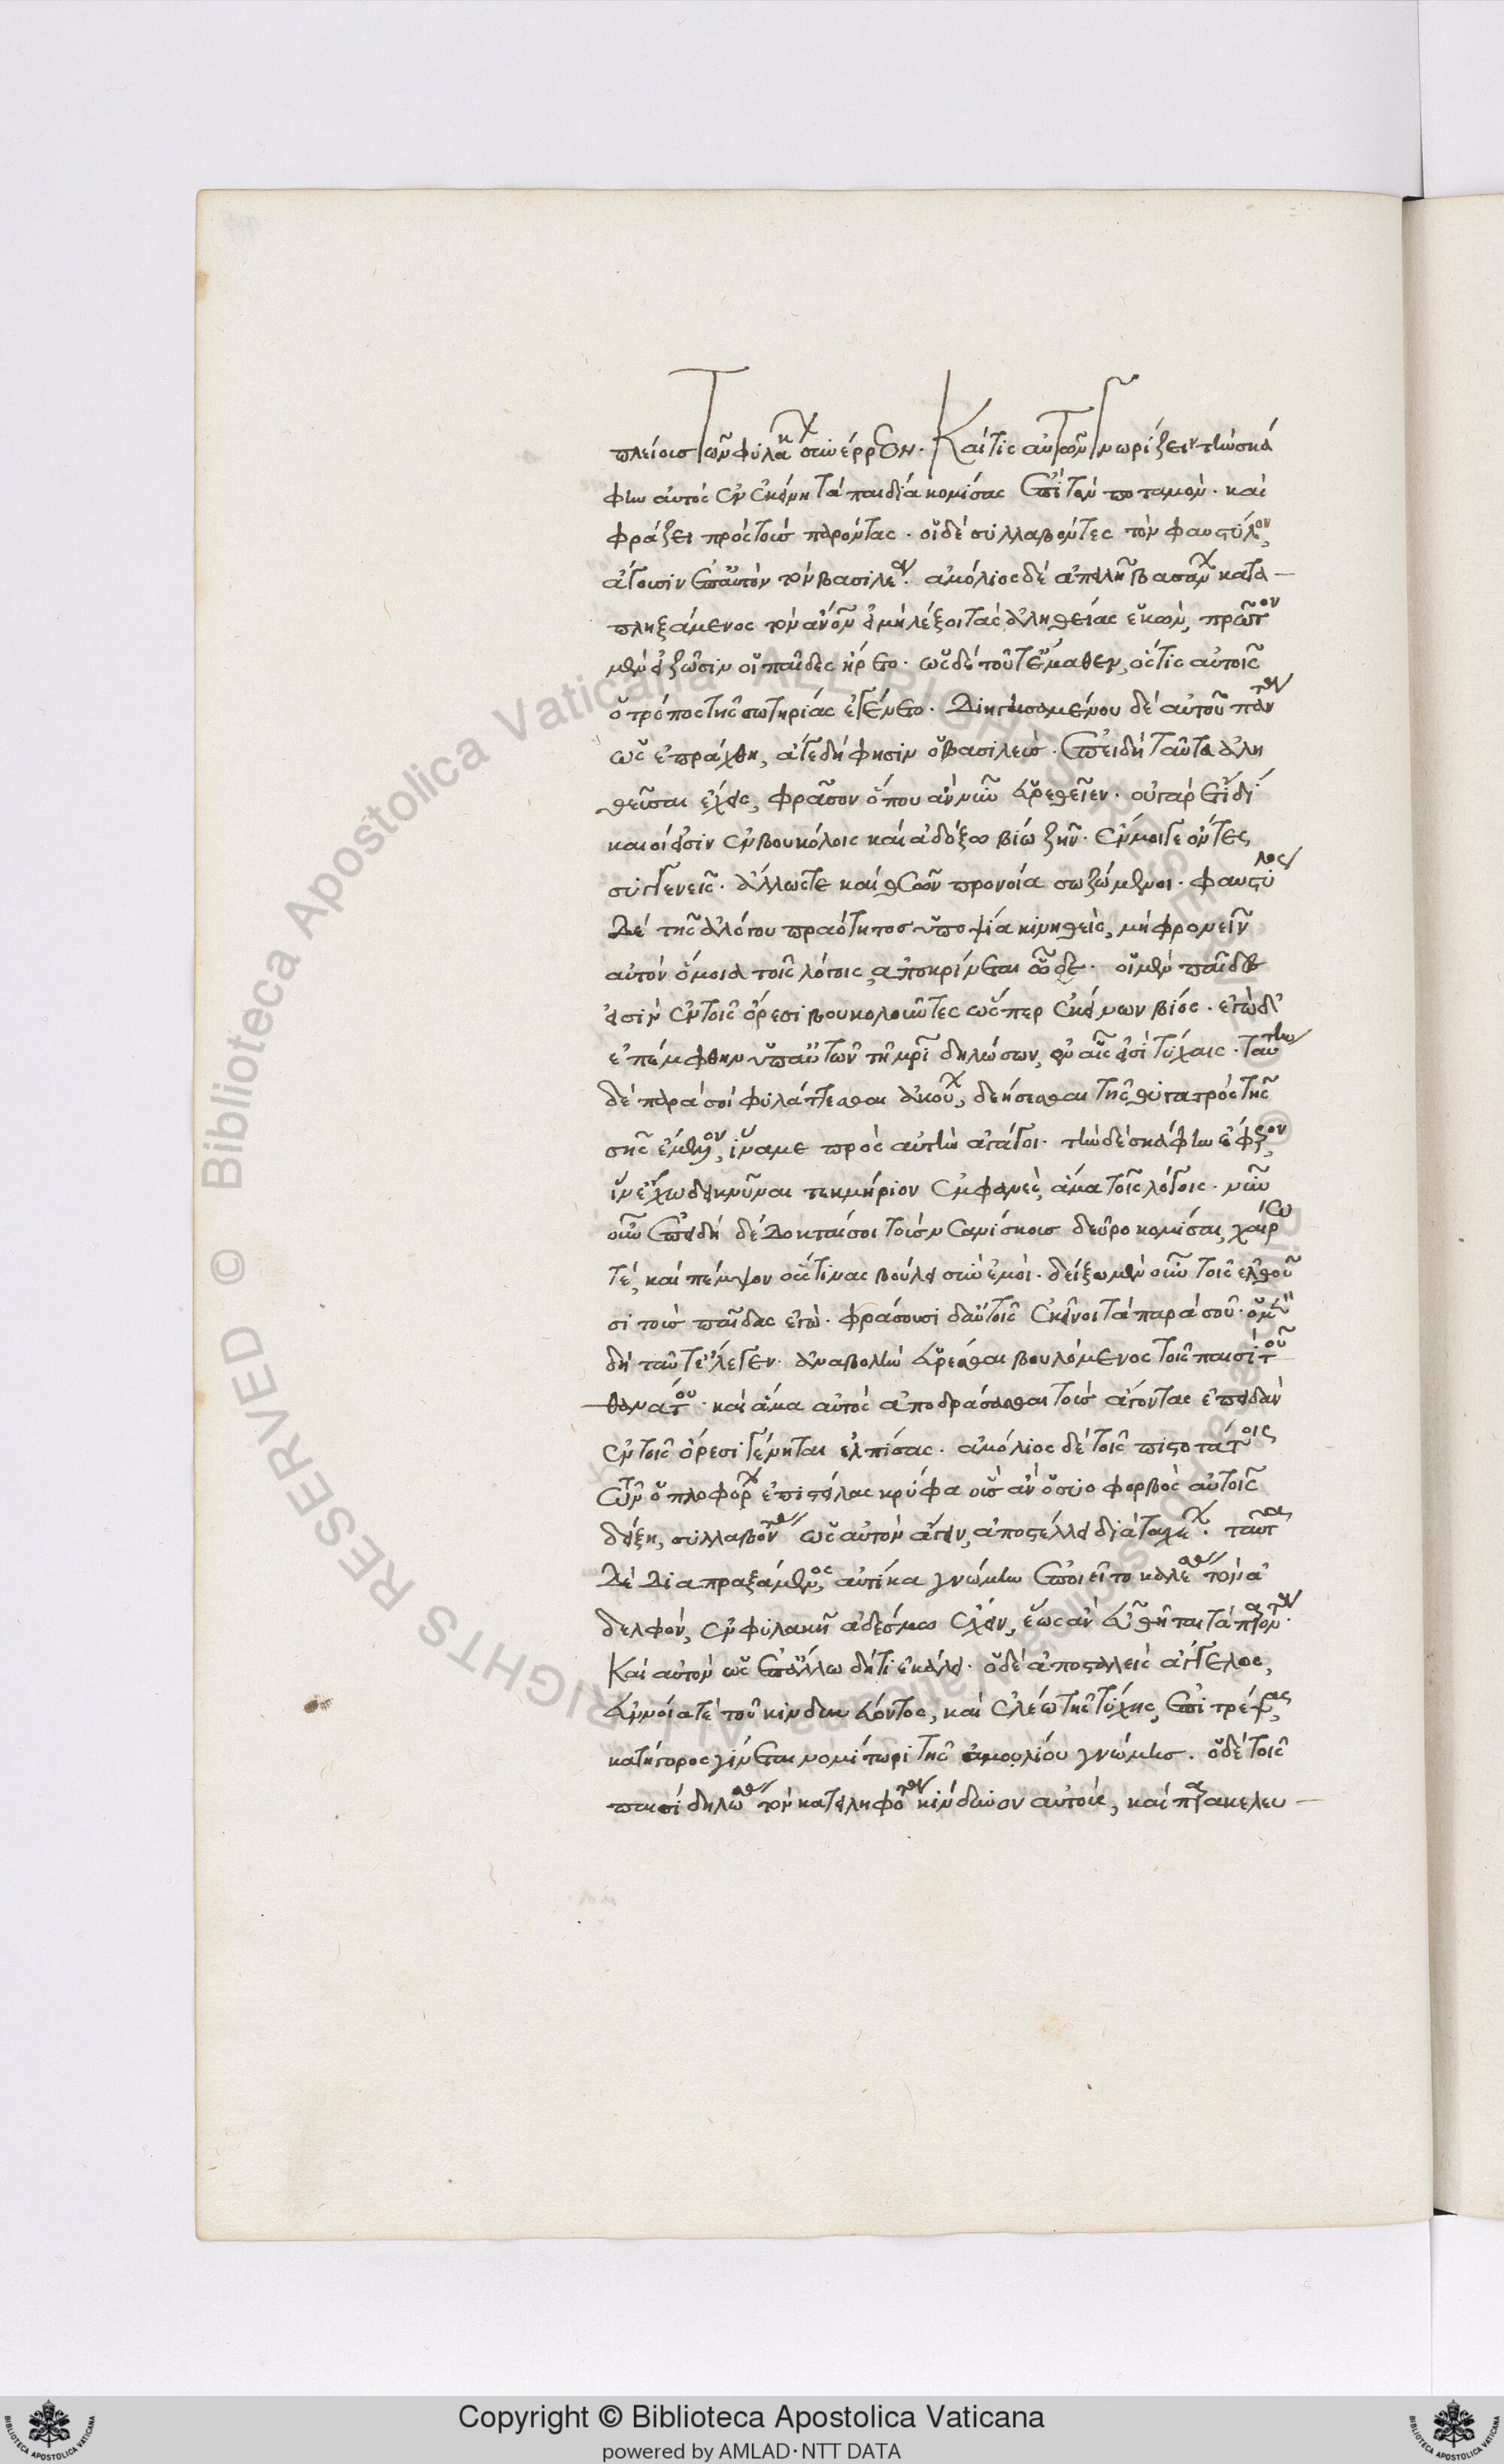 πλείους τῶν φυλάκων συνέρρει. Καί τις αὐτῶν γνωρίζει τὴν σκά
φην αὐτὸς ἐν ἐκείνη τὰ παιδία κομίσας ἐπὶ τὸν ποταμὸν. καὶ
φράζει πρὸς τοὺς παρόντας. οἱ δὲ συλλαβόντες τὸν φαυστύλον,
ἄγουσιν ἐπ' αὐτὸν τὸν βασιλέα. ἀμόλιος δὲ ἀπειλῆ βασάνων κατα-
πληξάμενος τὸν ἄνον εἰ μὴ λέξοι τὰς ἀληθείας ἑκὼν, πρῶτον
μὲν εἰ ζῶσιν οἱ παῖδες ἤρετο. ὡς δὲ τοῦτ' ἔμαθεν, ὅστις αὐτοῖς
ὁ τρόπος τῆς σωτηρίας ἐγένετο. Διηγησαμένου δὲ αὐτοῦ πάντα
ὡς ἐπράχθη, ἄγε δή φησιν ὁ βασιλεὺς. ἐπειδὴ ταῦτα ἀλη
θεῦσαι ἔχεις, φράσον ὅπου ἂν νῦν εὑρεθεῖεν. οὐ γὰρ ἔτι δί
καιοί εἰσιν ἐν βουκόλοις καὶ ἀδόξω βίω ζῆν. ἔμοιγε ὄντες
συγγενεῖς. ἄλλως τε καὶ θεῶν προνοία σωζόμενοι. φαυστύλος
δὲ τῆς ἀλόγου πραότητος ὑποψία κινηθεὶς, μὴ φρονεῖν
αὐτὸν ὅμοια τοῖς λόγοις, ἀποκρίνεται ὧδε. οἱ μὲν παῖδες
εἰσὶν ἐν τοῖς ὄρεσι βουκολοῦντες ὥσπερ ἐκείνων βίος. ἐγὼ δ'
ἐπέμφθην ὑπ' αὐτῶν τῆ μρὶ δηλώσων, ἐν αἷς εἰσὶ τύχαις. ταύτην
δὲ παρὰ σοὶ φυλάττεσθαι ἀκούων, δεήσεσθαι τῆς θυγατρὸς τῆς
σῆς ἔμελλον, ἵνα με πρὸς αὐτὴν ἀγάγοι. τὴν δὲ σκάφην ἔφερον,
ἵν' ἔχω δεικνῦναι τεκμήριον ἐμφανὲς ἅμα τοῖς λόγοις. νῦν
οὖν ἐπειδὴ δέδοκταί σοι τοὺς νεανίσκους δεῦρο κομίσαι, χαίρω
τὲ, καὶ πέμψον οὕστινας βούλει σὺν ἐμοὶ. δείξω μὲν οὖν τοῖς ἐλθοῦ
σι τοὺς παῖδας ἐγὼ. φράσουσι δ' αὐτοῖς ἐκεῖνοι τὰ παρὰ σοῦ. ὁ μὲν
δὴ ταῦτ' ἔλεγεν ἀναβολὴν εὑρέσθαι βουλόμενος τοῖς παισὶ τοῦ
θανάτου. καὶ ἅμα αὐτὸς ἀποδράσεσθαι τοὺς ἄγοντας ἐπειδὰν
ἐν τοῖς ὄρεσι γένηται ἐλπίσας. ἀμόλιος δὲ τοῖς πιστοτάτοις
τῶν ὁπλοφόρων ἐπιστείλας κρύφα οὓς ἂν ὁ συοφορβὸς αὐτοῖς
δείξη, συλλαβόντας ὡς αὐτὸν ἄγειν, ἀποστέλλει διὰ ταχέων. ταῦτα
δὲ διαπραξάμενος αὐτίκα γνώμην ἐποιεῖτο καλέσας τὸν ἀ
δελφόν, ἐν φυλακῆ ἀδέσμω ἔχειν, ἕως ἂν εὖ θῆται τὰ παρόντα.
Καὶ αὐτὸν ὡς ἐπ' ἄλλω δή τι ἐκάλει. ὁ δὲ ἀποσταλεὶς ἄγγελος,
εὐνοία τὲ τοῦ κινδυνεύοντος, καὶ ἐλέω τῆς τύχης ἐπιτρέψας,
κατήγορος γίνεται νομίτωρι τῆς ἀμουλίου γνώμης. ὁ δὲ τοῖς
παισὶ δηλώσας τὸν κατειληφότα κίνδυνον αὐτοὺς, καὶ παρακελευ-